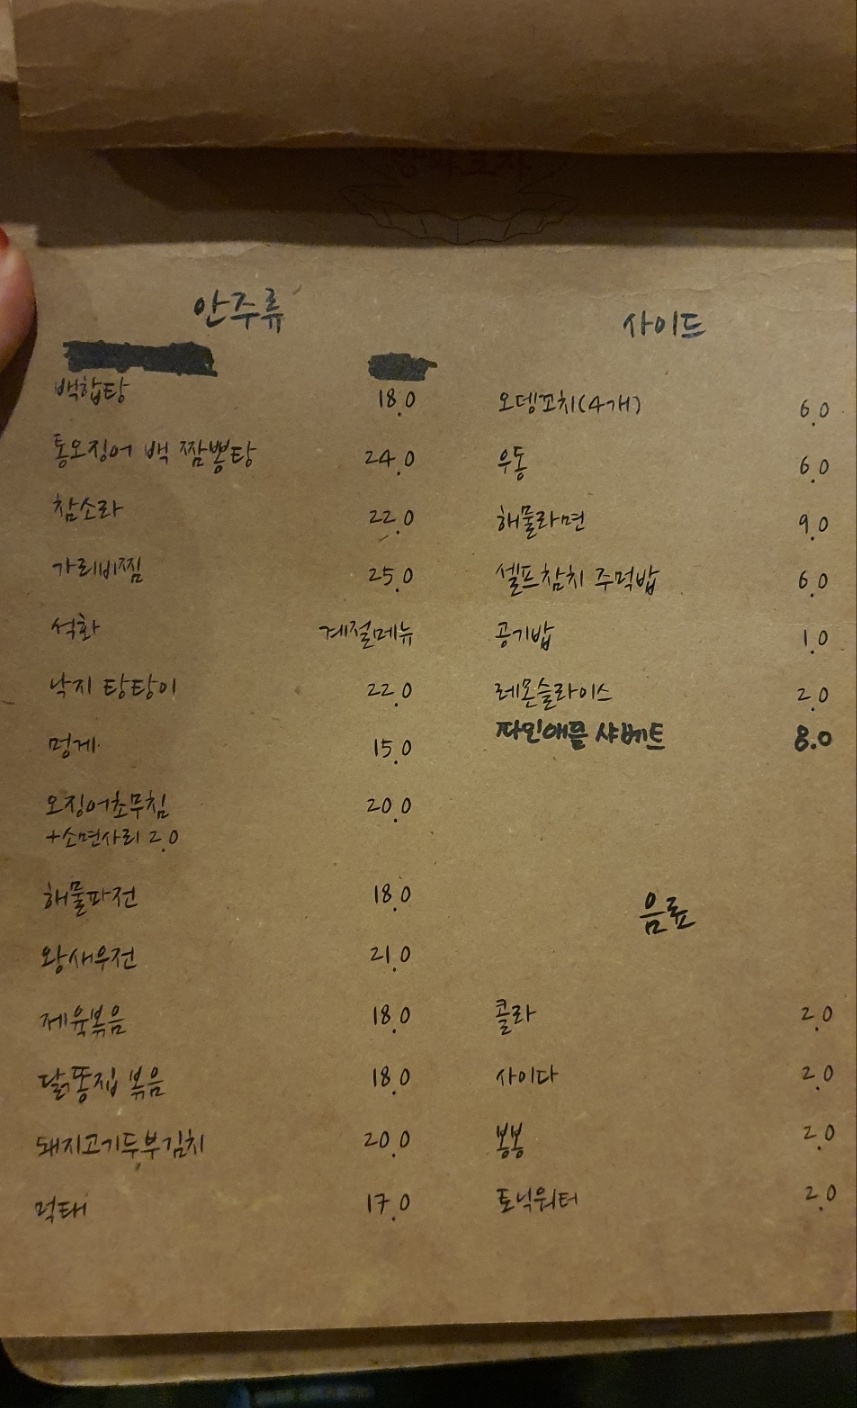 안주류
백합탕 18.0
통오징어 백 짬뽕탕 24.0
참소라 22.0
가리비찜 25.0
석화 계절메뉴
낙지 탕탕이 22.0
멍게 15.0
오징어초무침 20.0
+소면사리 2.0
해물파전 18.0
왕새우전 21.0
제육볶음 18.0
닭똥집 볶음 18.0
돼지고기두부김치 20.0
먹태 17.0
사이드
오뎅꼬치(4개) 6.0
우동 6.0
해물라면 9.0
셀프참치 주먹밥 6.0
공기밥 1.0
레몬슬라이스 2.0
파인애플 샤베트 8.0
음료
콜라 2.0
사이다 2.0
봉봉 2.0
토닉워터 2.0